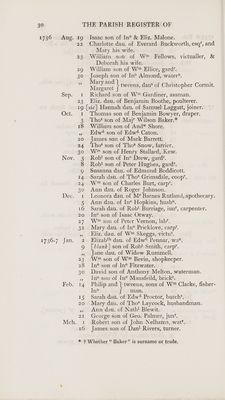 30 THE PARISH REGISTER OF
1736 Aug. 19 Isaac son of Inº & Eliz. Malone.
22 Charlotte dau. of Everard Buckworth, esqʳ, and
Mary his wife.
23 William son of Wᵐ Fellows, victualler, &
Deborah his wife.
29 William son of Wᵐ Ellice, gardʳ.
30 Joseph son of Inº Almond, waterᵐ.
„ Mary and } twyens, dauˢ of Christopher Cormit.
Margaret
Sep. 1 Richard son of Wᵐ Gardiner, assman.
23 Eliz. dau. of Benjamin Boothe, poulterer.
19 [sic] Hannah dau. of Samuel Laggatt, joiner.
Oct. 1 Thomas son of Benjamin Bowyer, draper.
3 Thoˢ son of Majʳ Wilson Baker.*
18 William son of Andʷ Shore.
„ Edwᵈ son of Edwᵈ Caton.
20 James son of Mark Barrett.
24 Thoˢ son of Thoˢ Snow, farrier.
30 Wᵐ son of Henry Stallard, Kew.
Nov. 5 Robᵗ son of Inº Drew, gardʳ.
8 Robᵗ son of Peter Hughes, gardʳ.
9 Susanna dau. of Edmond Boddicott.
24 Sarah dau. of Thoˢ Grimsdale, coopʳ.
24 Wᵐ son of Charles Burt, carpʳ.
30 Ann dau. of Roger Johnson.
Dec. 1 Leonora dau. of Mʳ Barnes Rutland, apothecary
5 Ann dau. of Inº Hopkins, husbⁿ.
16 Sarah dau. of Robᵗ Burriage, junʳ, carpenter.
20 Inº son of Isaac Otway.
27 Wᵐ son of Peter Vernon, labʳ.
31 Mary dau. of Inº Pricklove, carpʳ.
„ Eliz. dau. of Wᵐ Skeggs, victuʳ.
1736-7 Jan. 2 Elizabᵗʰ dau. of Edwᵈ Pennar, watᵐ.
9 [blank] son of Robᵗ Smith, carpʳ.
„ Jane dau. of Widow Rummell.
23 Wᵐ son of Wᵐ Bevin, shopkeeper.
28 Inº son of Inº Fitzwater.
30 David son of Anthony Melton, waterman.
„ Inº son of Inº Mansfield, brickʳ.
Feb. 14 Philip and } tweens, sons of Wᵐ Clarke, fisher-
Inº man.
15 Sarah dau. of Edwᵈ Proctor, butchʳ.
20 Mary dau. of Thoˢ Laycock, husbandman.
„ Ann dau. of Nathˡ Blewit.
22 George son of Geo. Palmer, junʳ.
Mch. 1 Robert son of John Nelhams, watᵐ.
16 James son of Danˡ Rivers, turner.
* ? Whether " Baker " is surname or trade.